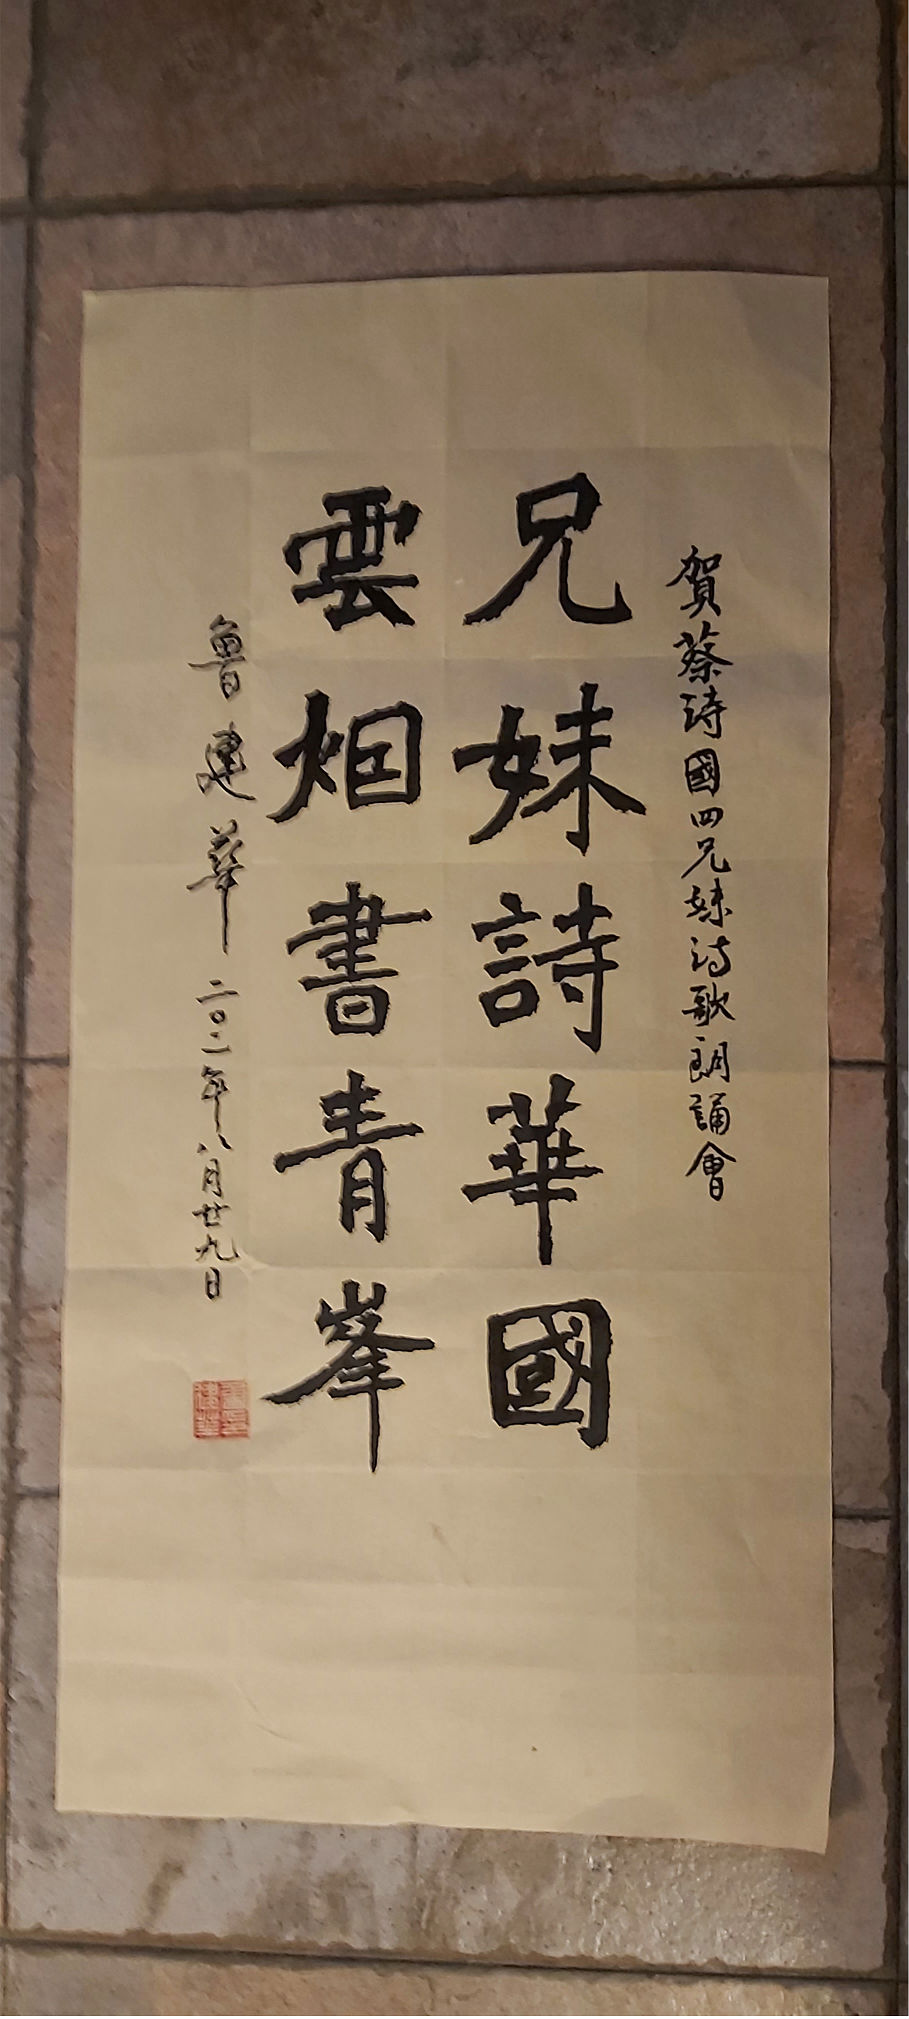 賀蔡詩國四兄妹詩歌朗誦會
兄妹詩華國
雲烟書青峯
魯建華 二〇二一年八月廿九日